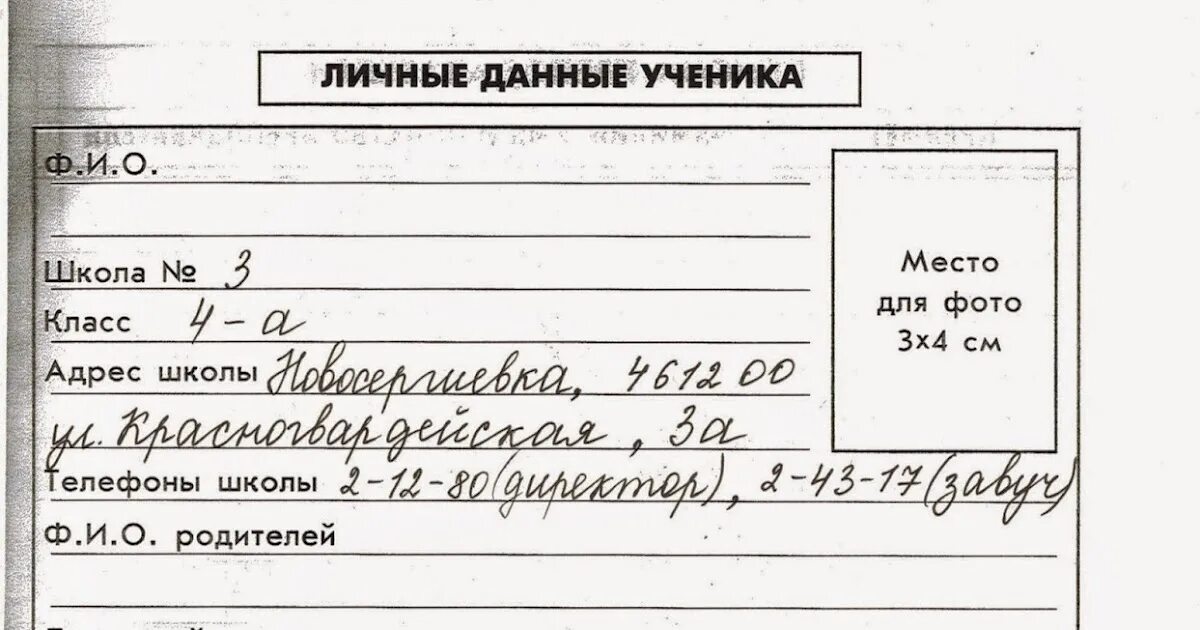 ЛИЧНЫЕ ДАННЫЕ УЧЕНИКА
Ф.И.О.
Школа № 3
Класс 4-а
Адрес школы Новосергиевка, 461200
ул. Красногвардейская, 3а
Телефоны школы 2-12-80 (директор), 2-43-17 (завуч)
Ф.И.О. родителей
Место
для фото
3х4 см